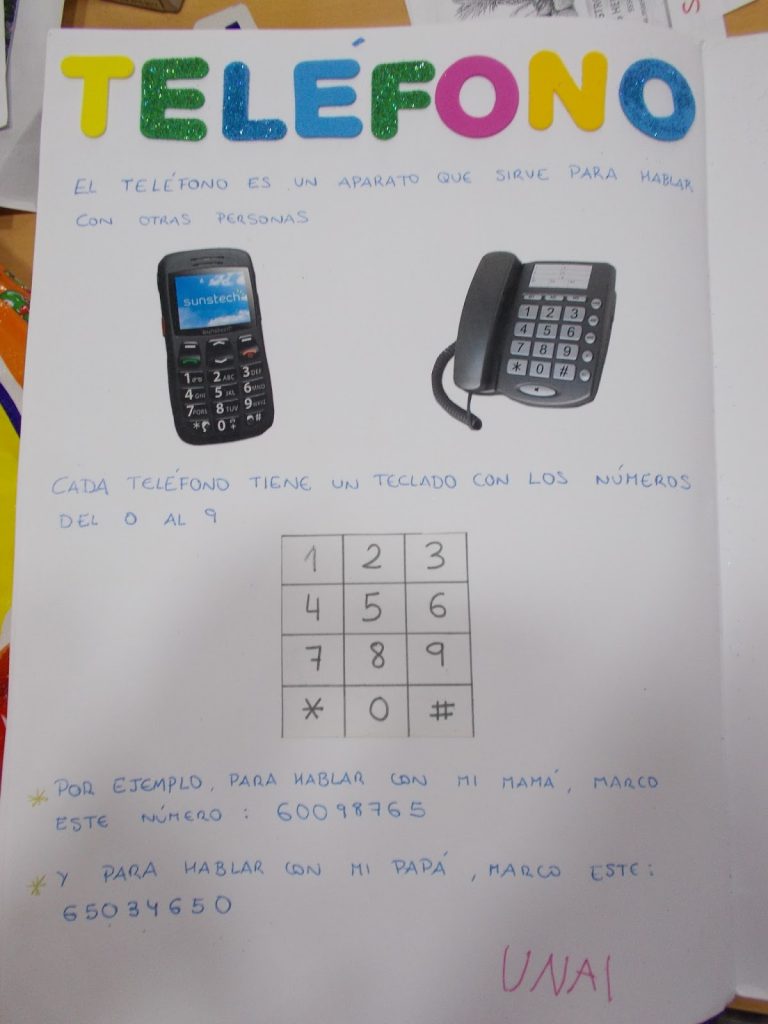 TELÉFONO
EL TELÉFONO ES UN APARATO QUE SIRVE PARA HABLAR
CON OTRAS PERSONAS
sunstech
sunstech
1
2 ABC
3 DEF
4 GHI
5 JKL
6 MNO
7 PQRS
8 TUV
9 WXYZ
* 0 + #
1 2 3
4 5 6
7 8 9
* 0 #
CADA TELÉFONO TIENE UN TECLADO CON LOS NÚMEROS
DEL 0 AL 9
1 2 3
4 5 6
7 8 9
* 0 #
* POR EJEMPLO, PARA HABLAR CON MI MAMÁ, MARCO
ESTE NÚMERO: 60098765
* Y PARA HABLAR CON MI PAPÁ, MARCO ESTE:
65034650
UNAI